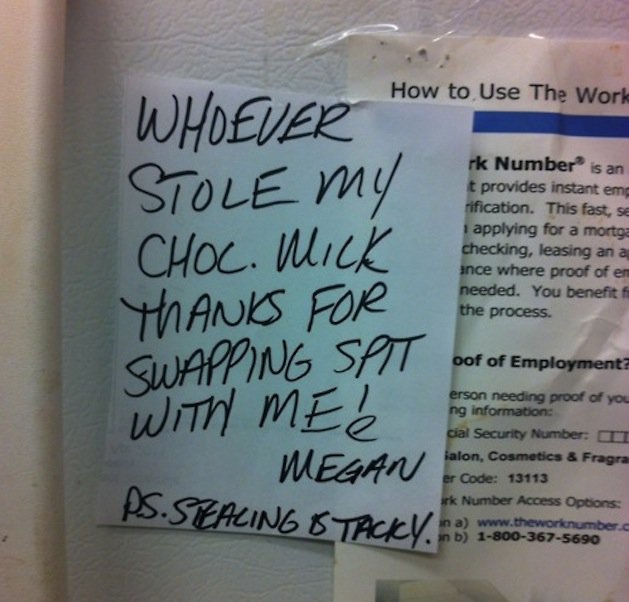 WHOEVER
STOLE MY
CHOC. MILK
THANKS FOR
SWAPPING SPIT
WITH ME!
MEGAN
P.S. STEALING IS TACKY.
How to Use The Work
rk Number® is an
t provides instant emp
rification. This fast, se
applying for a mortga
checking, leasing an a
ance where proof of em
needed. You benefit f
the process.
oof of Employment?
erson needing proof of you
ng information:
cial Security Number:
Salon, Cosmetics & Fragra
er Code: 13113
rk Number Access Options:
n a) www.theworknumber.c
n b) 1-800-367-5690